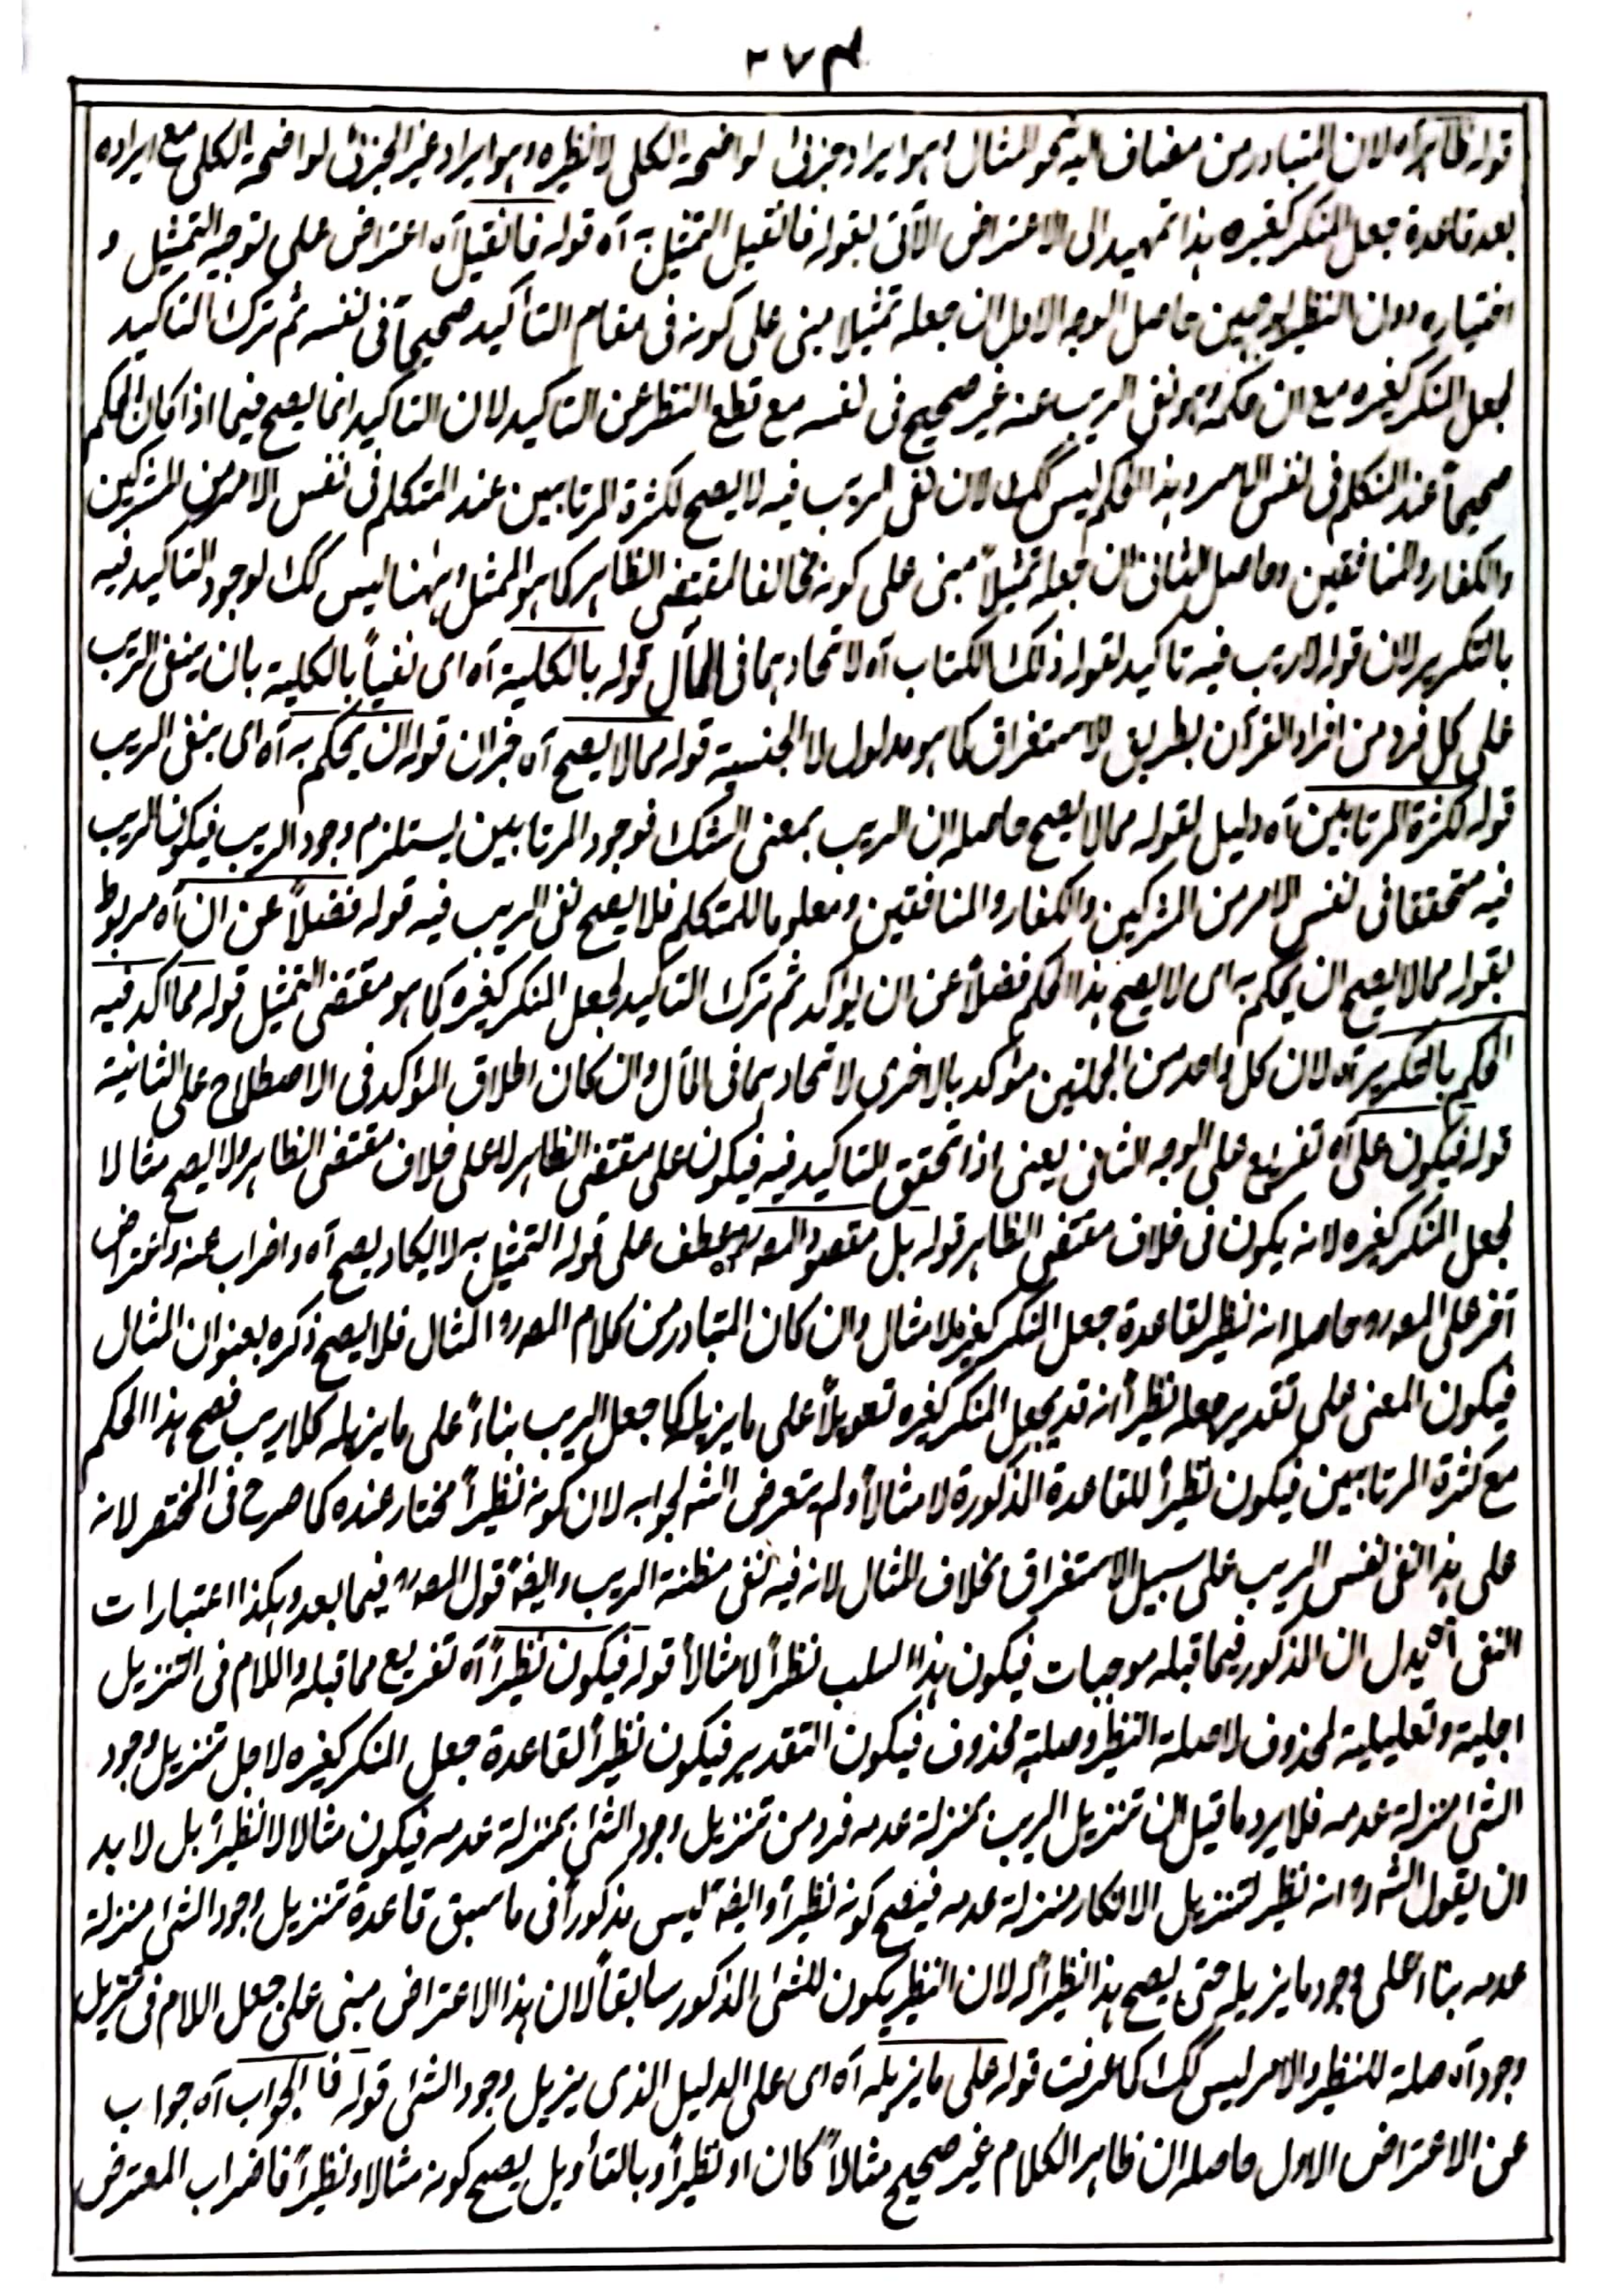 ٢٧٣
قوله ظاهره آه لان المتبادر من مضاف اليه نحو المثال وهو ايراد جزئى لواضحة الكلى لا نظيره وهو ايراد غير الجزئى لواضحة الكلى مع ايراده
بعد قاعدة جعل المنكر كغيره هذا تمهيد الى الاعتراض الآتى بقوله فان قيل التمثيل به آه قوله فان قيل آه اعتراض على توجيه التمثيل و
اختياره دون النظير بوجهين حاصل الوجه الاول ان جعله تمثيلا مبنى على كونه فى مقام التأكيد صحيحاً فى نفسه ثم ترك التاكيد
لجعل المنكر كغيره مع ان حكمه وهو نفى الريب عنه غير صحيح فى نفسه مع قطع النظر عن التاكيد لان التاكيد انما يصح فيما اذا كان الحكم
صحيحاً عند المتكلم فى نفس الامر وهذا الحكم ليس كك لان نفى الريب فيه لا يصح لكثرة المرتابين عند المتكلم فى نفس الامر من المشركين
والكفار والمنافقين وحاصل الثانى ان جعله تمثيلاً مبنى على كونه مخالفا لمقتضى الظاهر كما هو الممثل وههنا ليس كك لوجود التاكيد فيه
بالتكرير لان قوله لاريب فيه تاكيد لقوله ذلك الكتاب آه لاتحادهما فى المآل قوله بالكلية آه اى نفياً بالكلية بان ينفى الريب
على كل فرد من افراد القرآن بطريق الاستغراق كما هو مدلول لا الجنسية قوله مما لا يصح آه خبر ان قوله ان يحكم به آه اى بنفى الريب
قوله لكثرة المرتابين آه دليل لقوله مما لا يصح حاصله ان الريب بمعنى الشك فوجود المرتابين يستلزم وجود الريب فيكون الريب
فيه متحققا فى نفس الامر من المشركين والكفار والمنافقين ومعلوما للمتكلم فلا يصح نفى الريب فيه قوله فضلاً عن ان آه مربوط
بقوله مما لا يصح ان يحكم به اى لا يصح هذا الحكم فضلاً عن ان يؤكد ثم ترك التاكيد لجعل المنكر كغيره كما هو مقتضى التمثيل قوله مما اكد فيه
الحكم بالتكرير آه لان كل واحد من الجملتين مؤكد بالاخرى لاتحادهما فى المآل وان كان اطلاق المؤكد فى الاصطلاح على الثانية
قوله فيكون على آه تفريع على الوجه الثانى يعنى اذا تحقق التاكيد فيه فيكون على مقتضى الظاهر لا على خلاف مقتضى الظاهر ولا يصح مثالا
لجعل المنكر كغيره لانه يكون فى خلاف مقتضى الظاهر قوله بل مقصود المصرو عطف على قوله التمثيل به لا يكاد يصح آه واضراب عنه واعتراض
آخر على المصرو حاصله انه نظير لقاعدة جعل المنكر كغيره لا مثال وان كان المتبادر من كلام المصرو المثال فلا يصح ذكره بعنوان المثال
فيكون المعنى على تقدير جعله نظيراً انه قد يجعل المنكر كغيره تعويلاً على ما يزيله كما جعل الريب بناءً على ما يزيله كلاريب فصح هذا الحكم
مع كثرة المرتابين فيكون نظيراً للقاعدة المذكورة لا مثالاً ولم يتعرض الشه لجوابه لان كونه نظيراً مختار عنده كما صرح فى المختصر لانه
على هذا نفى نفس الريب على سبيل الاستغراق بخلاف المثال لانه فيه نفى مظنة الريب وايضاً قول المصرو فيما بعد وهكذا اعتبارات
النفى آه يدل ان المذكور فيما قبله موجبات فيكون هذا السلب نظيراً لا مثالاً قوله فيكون نظيراً آه تفريع مما قبله واللام فى التنزيل
اجلية وتعليلية لمحذوف لا صلة النظير وصلته محذوف فيكون التقدير فيكون نظيراً لقاعدة جعل المنكر كغيره لاجل تنزيل وجود
الشئ منزلة عدمه فلا يرد ما قيل ان تنزيل الريب بمنزلة عدمه فرد من تنزيل وجود الشئ بمنزلة عدمه فيكون مثالا لا نظيراً بل لا بد
ان يقول الشه رو انه نظير لتنزيل الانكار منزلة عدمه فيصح كونه نظيراً وايضاً ليس مذكوراً فى ما سبق قاعدة تنزيل وجود الشئ منزلة
عدمه بناءً على وجود ما يزيله حتى يصح هذا نظيراً له لان النظير يكون للشئ المذكور سابقاً لان هذا الاعتراض مبنى على جعل اللام فى تنزيل
وجود آه صلة للنظير والامر ليس كك كما عرفت قوله على ما يزيله آه اى على الدليل الذى يزيل وجود الشئ قوله فالجواب آه جواب
عن الاعتراض الاول حاصله ان ظاهر الكلام غير صحيح مثالاً كان او نظيراً وبالتأويل يصح كونه مثالا ونظيراً فاضراب المعترض